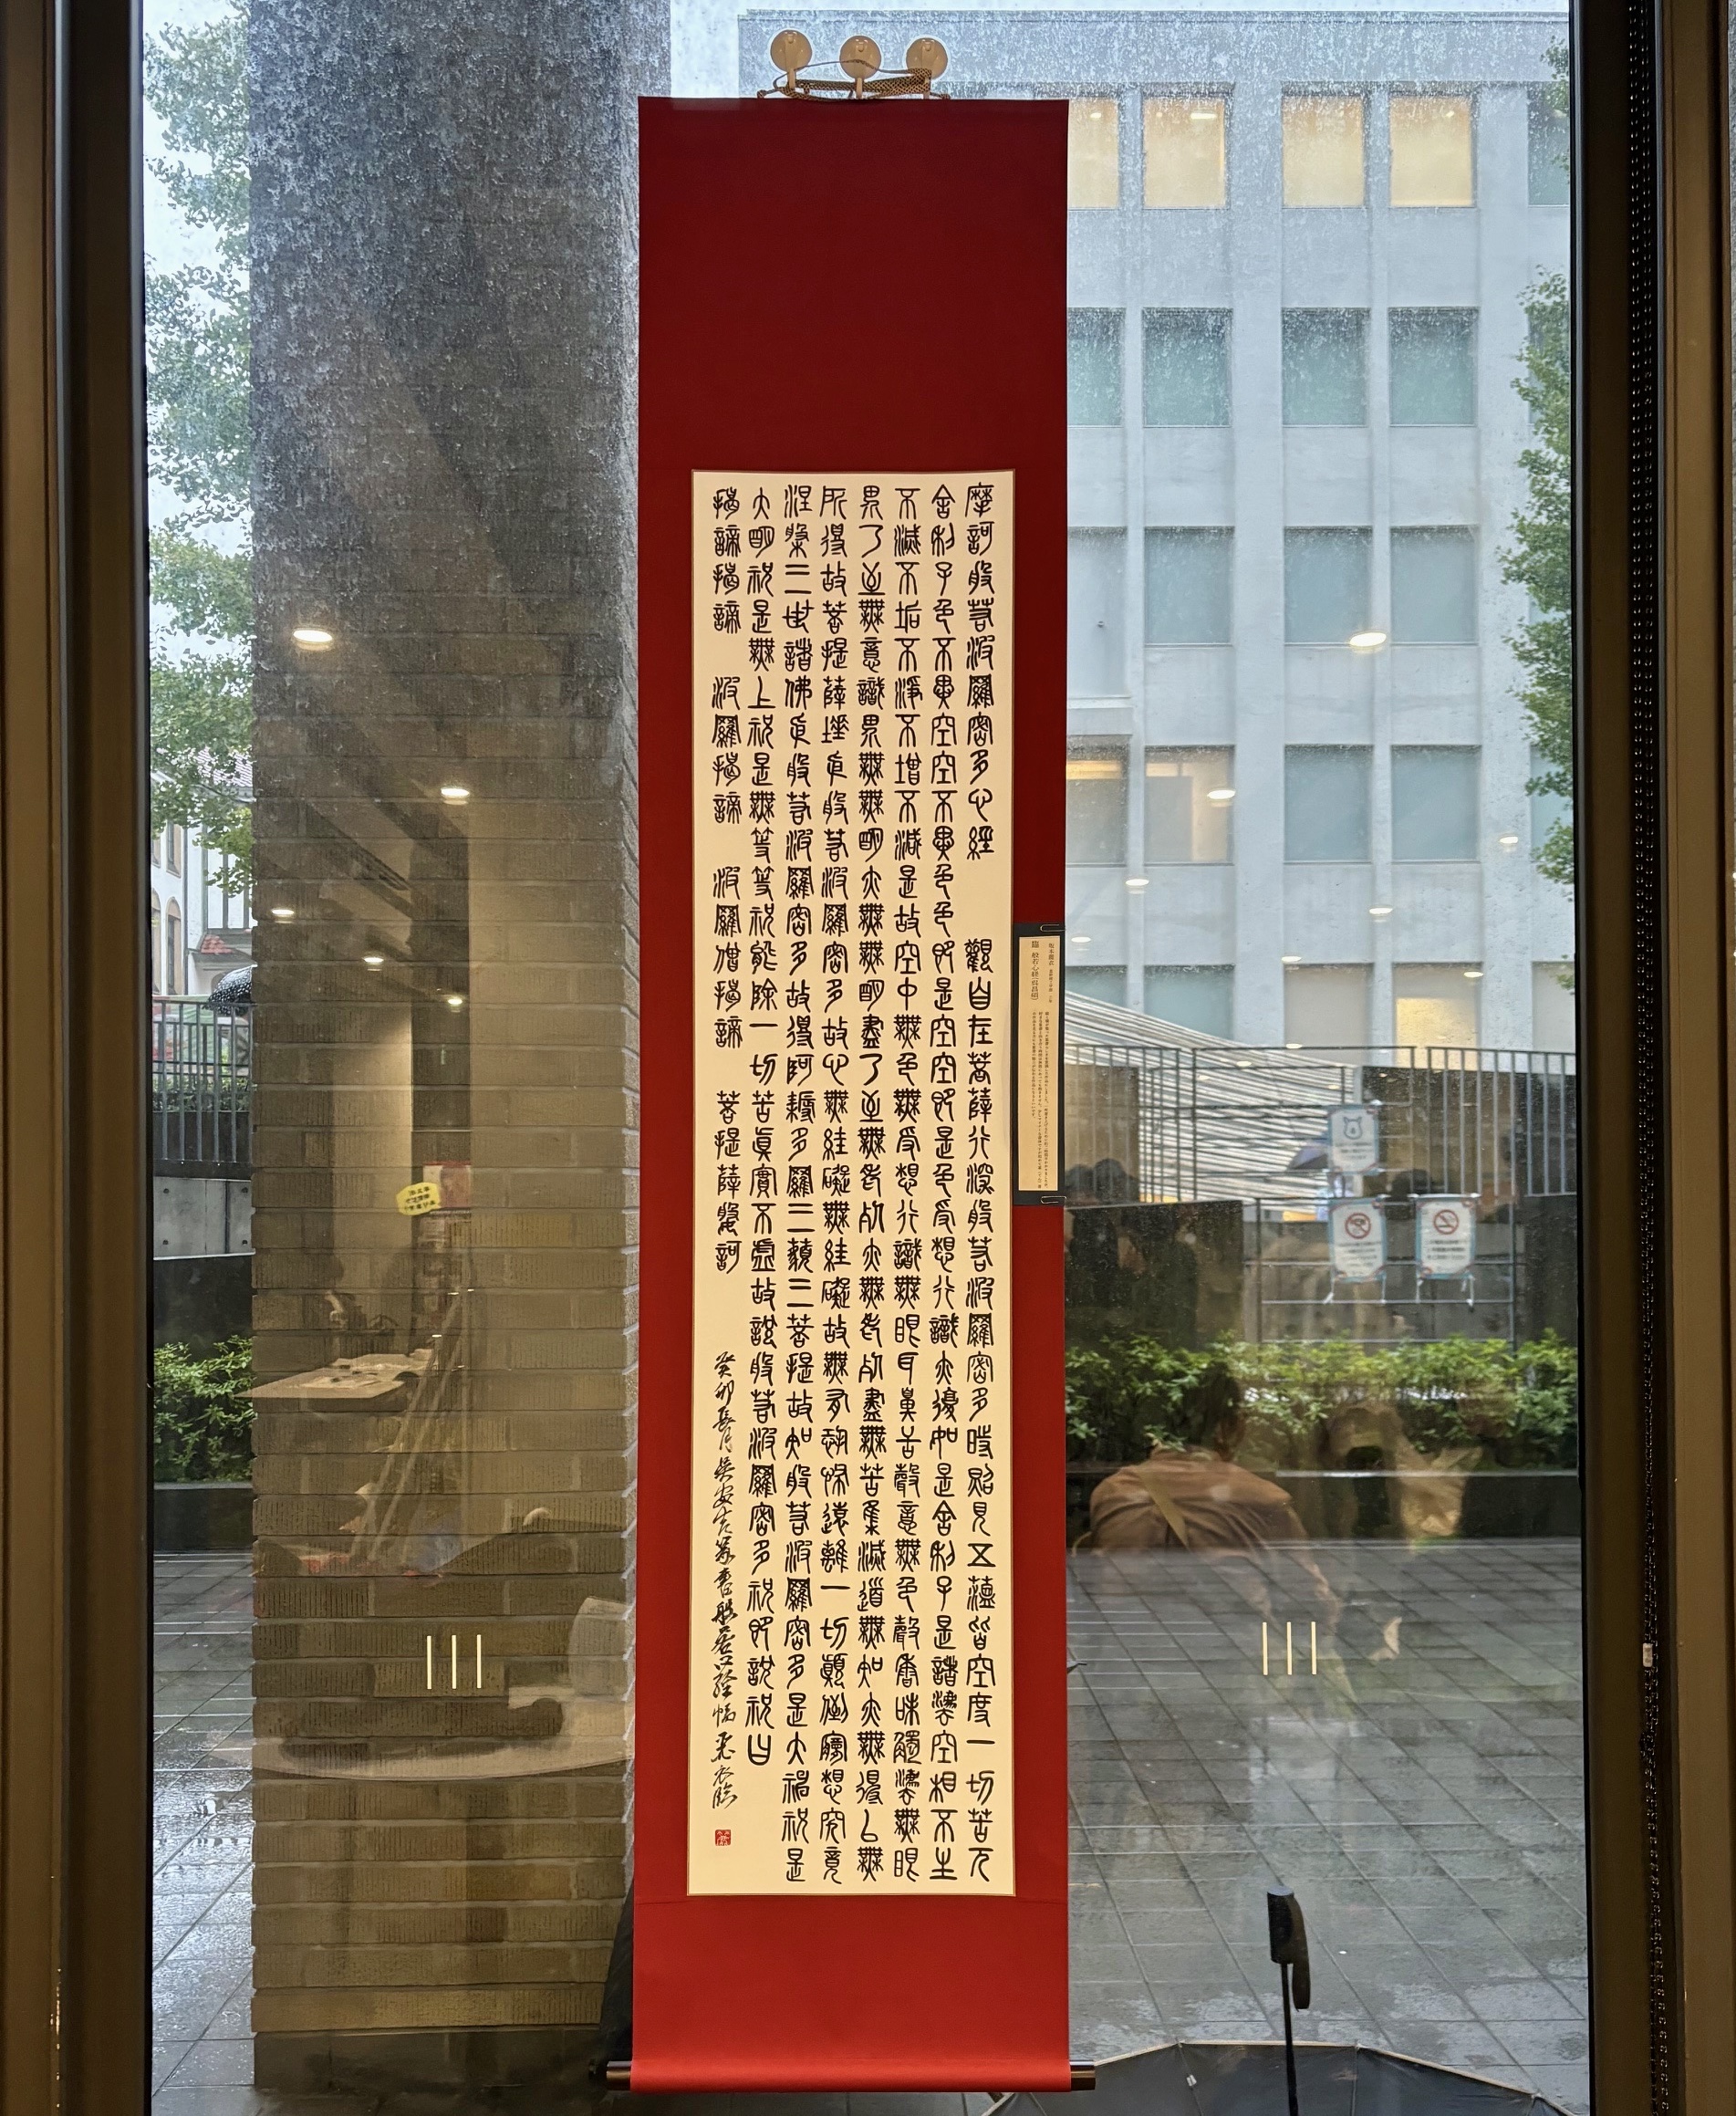 摩訶般若波羅密多心經 觀自在菩薩行深般若波羅密多時照見五蘊皆空度一切苦厄
舍利子色不異空空不異色色即是空空即是色受想行識亦復如是舍利子是諸法空相不生
不滅不垢不淨不增不減是故空中無色無受想行識無眼耳鼻舌聲意無色聲香味觸法無眼
界乃至無意識界無無明亦無無明盡乃至無老死亦無老死盡無苦集滅道無知亦無得以無
所得故菩提薩埵依般若波羅密多故心無罣礙無罣礙故無有恐怖遠離一切顛倒夢想究竟
涅槃三世諸佛依般若波羅密多故得阿耨多羅三藐三菩提故知般若波羅密多是大神祝是
大明祝是無上祝是無等等祝能除一切苦真實不虛故說般若波羅密多祝即說祝曰
揭諦揭諦 波羅揭諦 波羅僧揭諦 菩提薩婆訶
癸卯長月 吳安吉篆書般若心經幅 臨
臨 般若心経(呉昌碩)